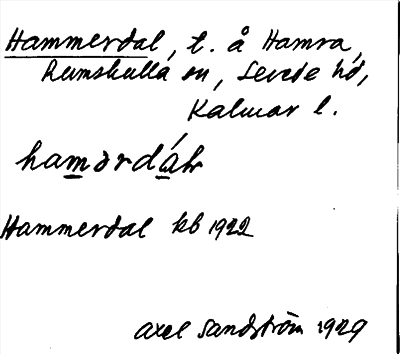 Hammerdal, t. å Hamra,
Rumskulla sn, Sevede hd,
Kalmar l.
hamərdáḷ
Hammerdal kb 1922
Axel Sandström 1929